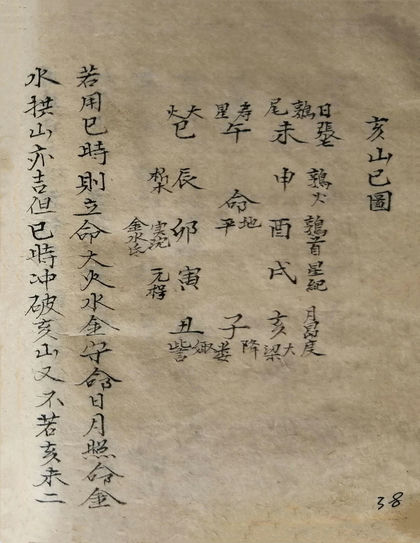 亥山巳圖
日張
鶉火 鶉首 星紀 月昴度
鶉尾 未 申 酉 戌 亥 大梁
壽星 午 命 地平 子 降婁
大火 巳 辰 卯 寅 丑 娵訾
析木 金水 元枵
若用巳時則立命大火水金守命日月照命金
水拱山亦吉但巳時冲破亥山又不若亥未二
38